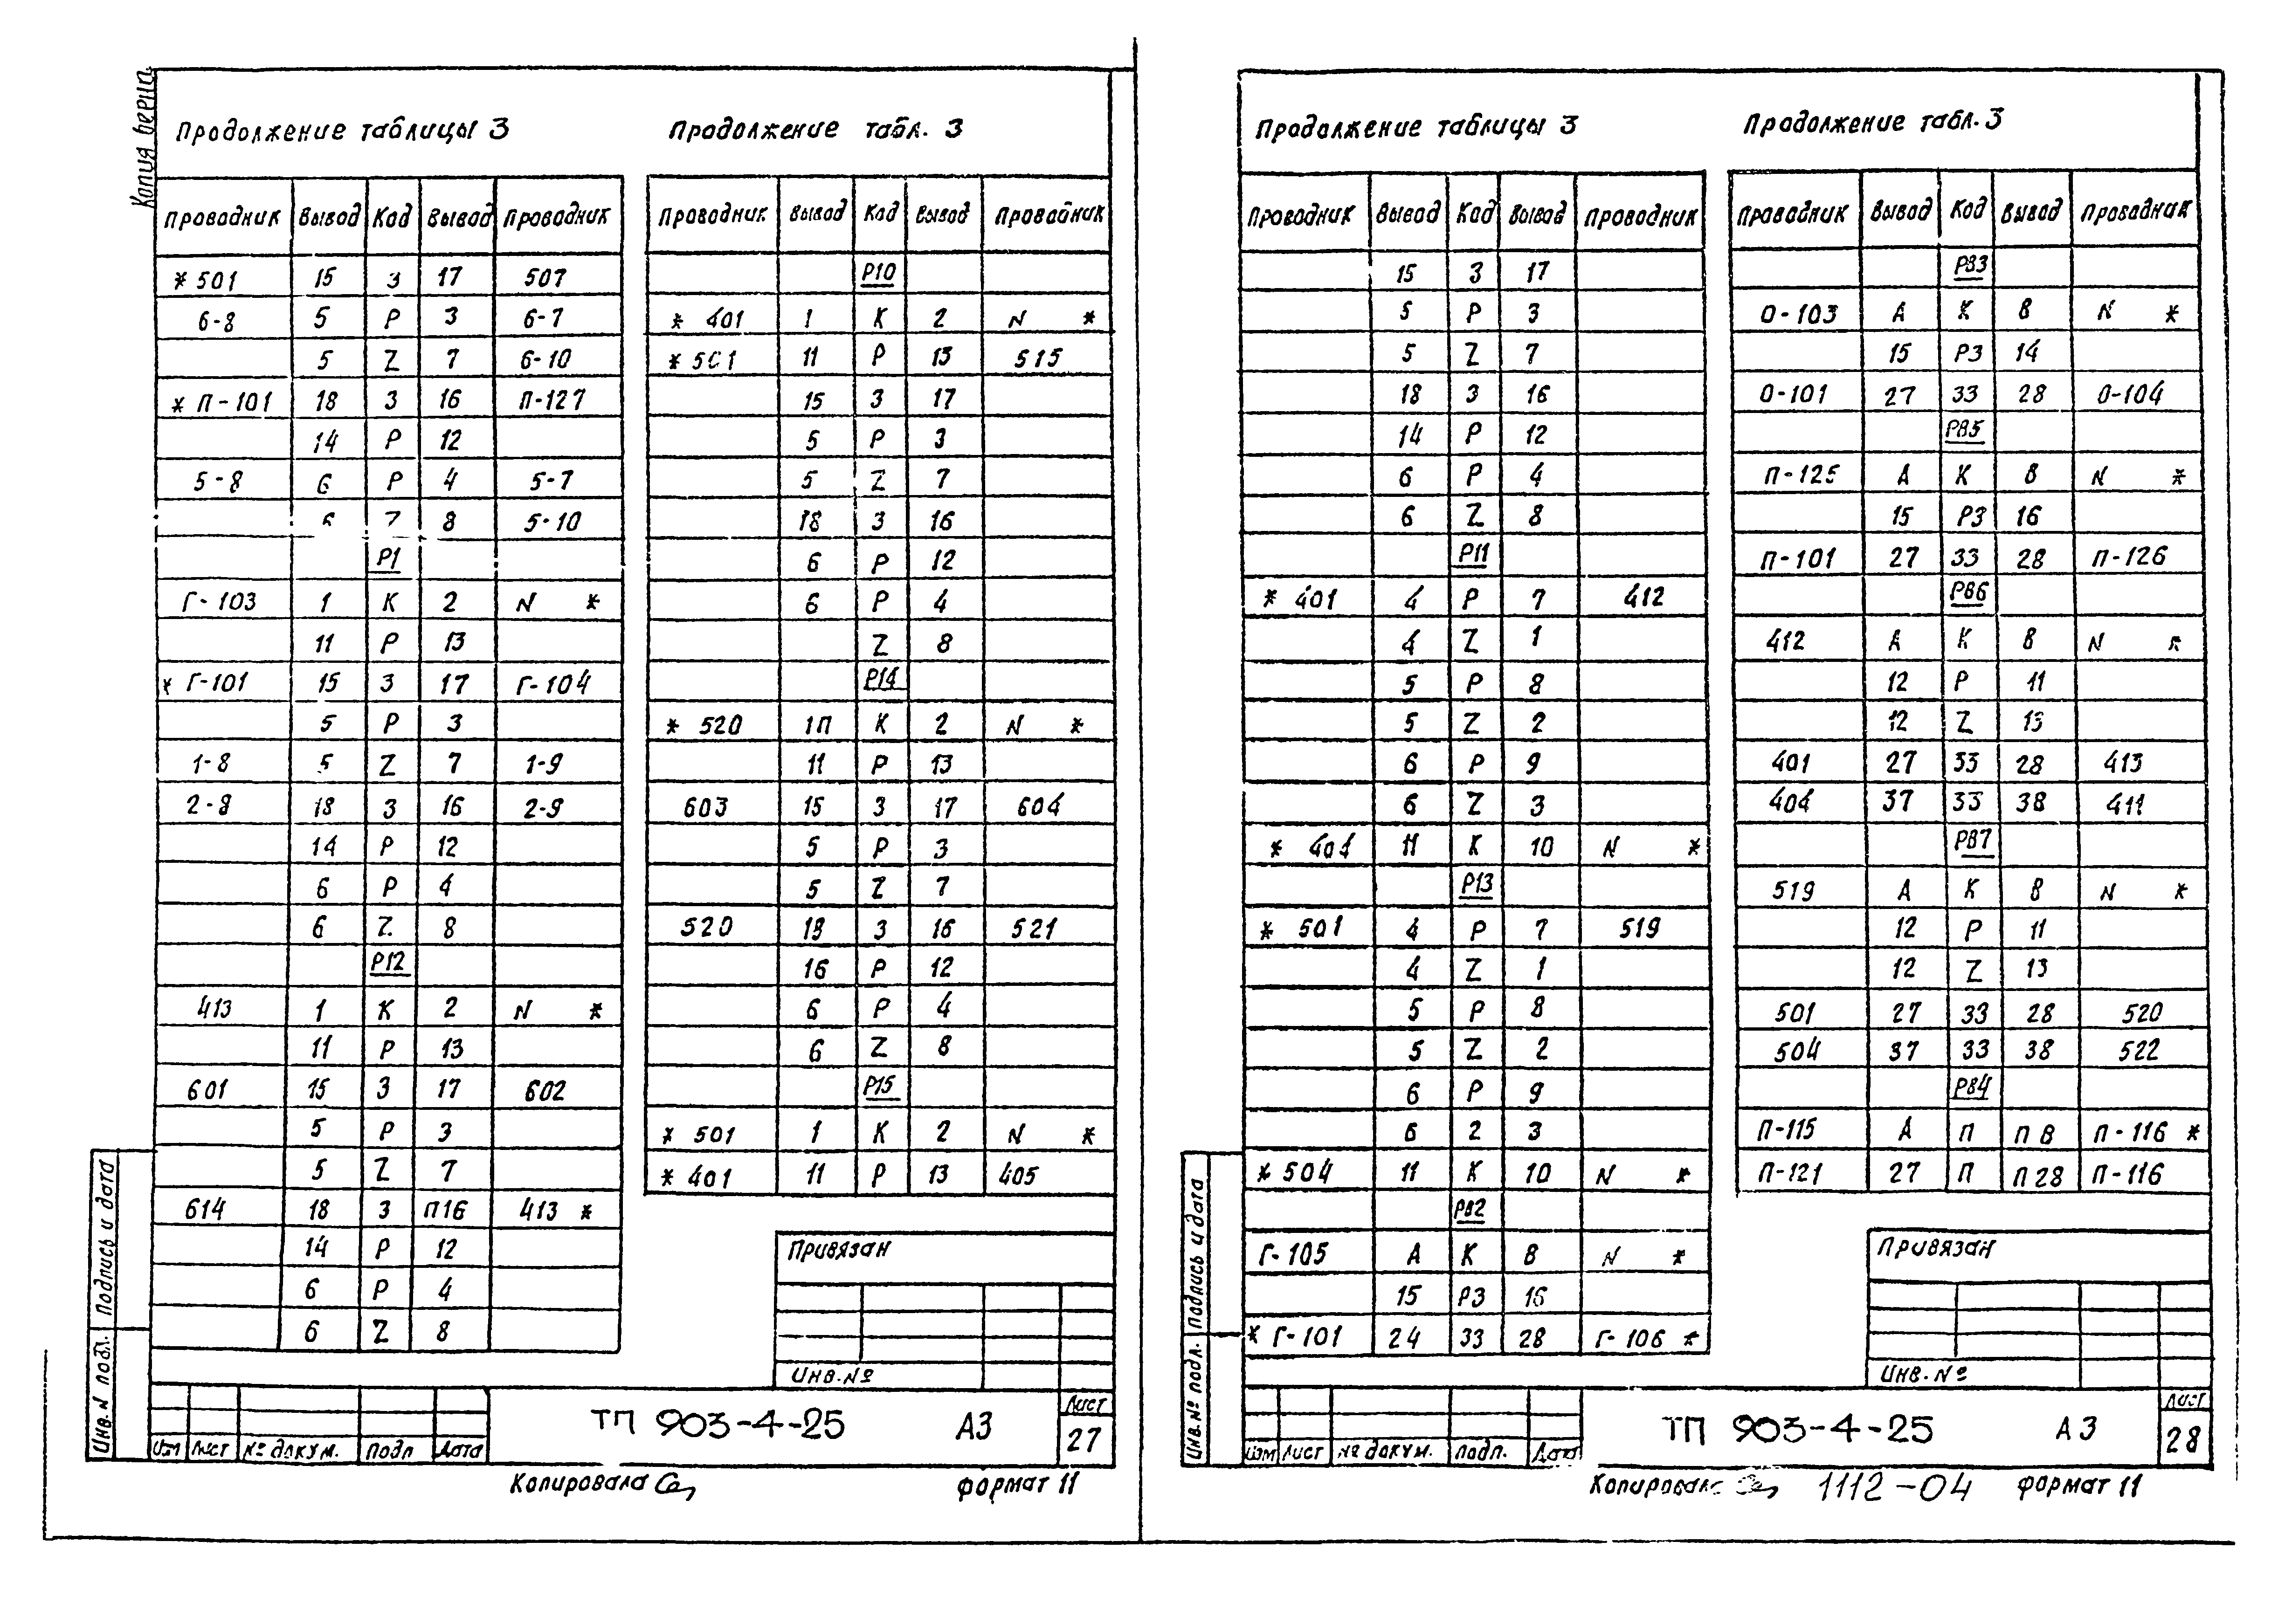 Копия верна
Продолжение таблицы 3
Проводник Вывод Код Вывод Проводник
* 501 15 З 17 507
6-8 5 Р 3 6-7
5 Z 7 6-10
* П-101 18 З 16 П-127
14 Р 12
5-8 6 Р 4 5-7
6 Z 8 5-10
Р1
Г-103 1 К 2 N *
11 Р 13
* Г-101 15 З 17 Г-104
5 Р 3
1-8 5 Z 7 1-9
2-8 18 З 16 2-9
14 Р 12
6 Р 4
6 Z 8
Р12
413 1 К 2 N *
11 Р 13
601 15 З 17 602
5 Р 3
5 Z 7
614 18 З П16 413 *
14 Р 12
6 Р 4
6 Z 8
Продолжение табл. 3
Проводник Вывод Код Вывод Проводник
Р10
* 401 1 К 2 N *
* 501 11 Р 13 515
15 З 17
5 Р 3
5 Z 7
18 З 16
6 Р 12
6 Р 4
Z 8
Р14
* 520 1П К 2 N *
11 Р 13
603 15 З 17 604
5 Р 3
5 Z 7
520 18 З 16 521
16 Р 12
6 Р 4
6 Z 8
Р15
* 501 1 К 2 N *
* 401 11 Р 13 405
Привязан
Инв.№
Инв. N подл. Подпись и дата
Изм Лист № докум. Подп Дата
ТП 903-4-25 А3
Лист
27
Копировала
Формат 11
Продолжение таблицы 3
Проводник Вывод Код Вывод Проводник
15 З 17
5 Р 3
5 Z 7
18 З 16
14 Р 12
6 Р 4
6 Z 8
Р11
* 401 4 Р 7 412
4 Z 1
5 Р 8
5 Z 2
6 Р 9
6 Z 3
* 404 11 К 10 N *
Р13
* 501 4 Р 7 519
4 Z 1
5 Р 8
5 Z 2
6 Р 9
6 2 3
* 504 11 К 10 N *
РВ2
Г-105 А К В N *
15 РЗ 16
* Г-101 24 ЗЗ 28 Г-106 *
Продолжение табл. 3
Проводник Вывод Код Вывод Проводник
РВ3
О-103 А К В N *
15 РЗ 14
О-101 27 ЗЗ 28 О-104
РВ5
П-125 А К В N *
15 РЗ 16
П-101 27 ЗЗ 28 П-126
РВ6
412 А К В N *
12 Р 11
12 Z 13
401 27 ЗЗ 28 413
404 37 ЗЗ 38 411
РВ7
519 А К В N *
12 Р 11
12 Z 13
501 27 ЗЗ 28 520
504 37 ЗЗ 38 522
РВ4
П-115 А П П В П-116 *
П-121 27 П П 28 П-116
Привязан
Инв. №
Инв. № подл. Подпись и дата
Изм Лист № докум. Подп. Дата
ТП 903-4-25 А3
Лист
28
Копировала
1112-04
Формат 11